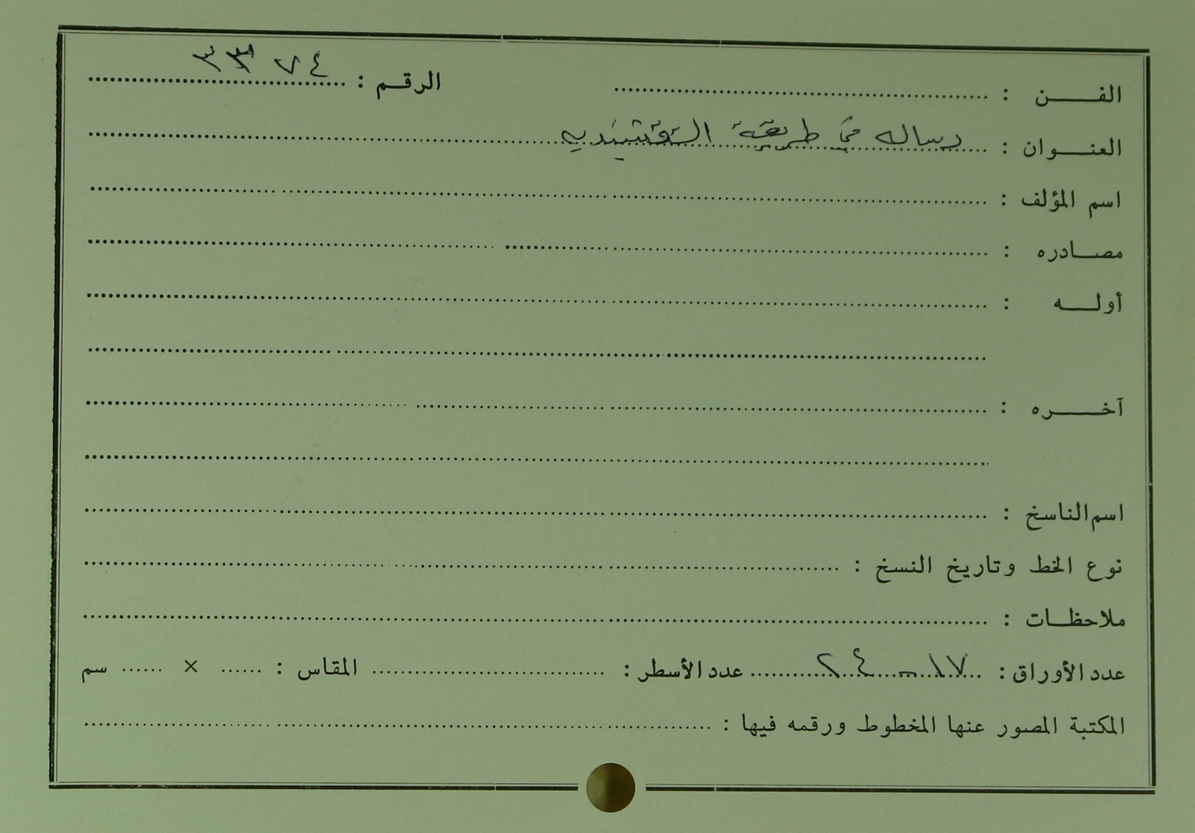 الفن : الرقم : ٣٣٧٤
العنوان : رساله في طريقة النقشبنديه
اسم المؤلف :
مصادره :
أوله :
آخره :
اسم الناسخ :
نوع الخط وتاريخ النسخ :
ملاحظات :
عدد الأوراق : ١٧ - ٢٤ عدد الأسطر : المقاس : × سم
المكتبة المصور عنها المخطوط ورقمه فيها :